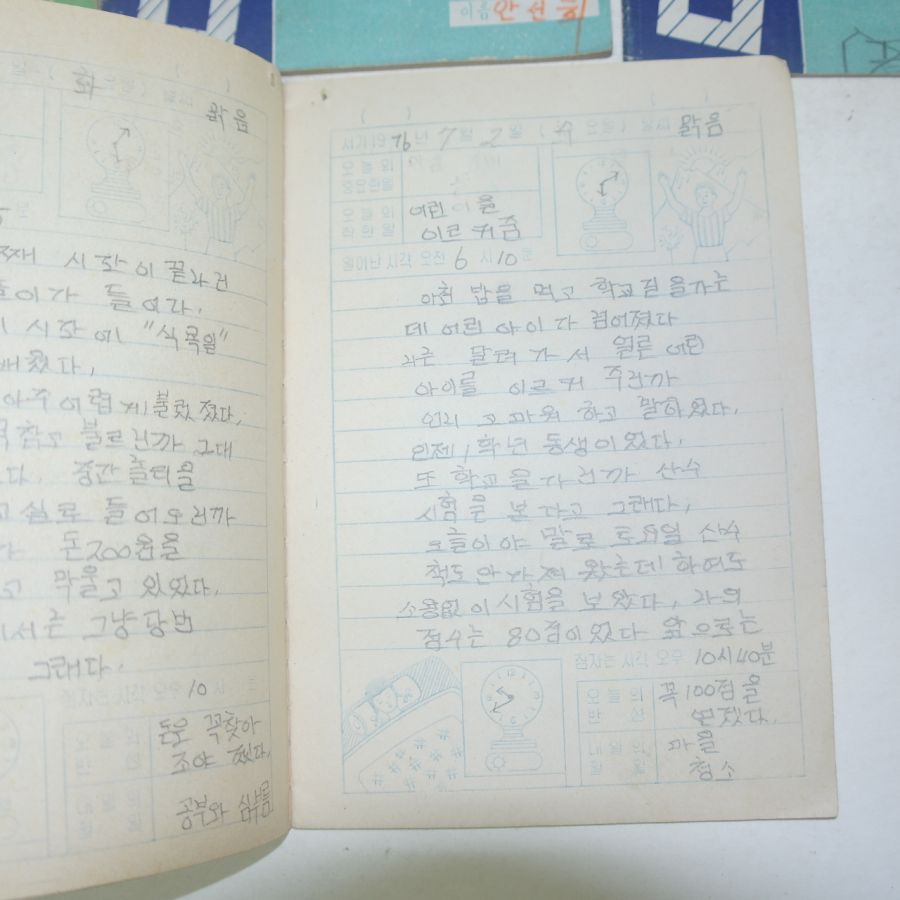 이름 안선희
화
맑음
시작이 끝나건
들어가 들여다.
시작에 "식목일"
배웠다.
아주 어렵게 불렀졌다.
참고 불르니까 그대
다. 중간 놀이을
교실로 들어오니까
돈200원을
고 막울고 있었다.
그냥 당번
그래다.
잠자는 시각 오후 10 시
돈은 꼭찾아
조야 겠다.
공부와 심부름
서기1976년 7월 2일 ( 요일) 날씨 맑음
오늘의 중요한일
오늘의 착한일
어린이을
이르켜줌
일어난 시각 오전 6시 10분
아침 밥을 먹고 학교길을가는
데 어린 아이가 넘어졌다
나는 달려가서 얼른 어린
아이를 이르켜 주니까
언니 고마워 하고 말하였다.
인제 1학년 동생이였다.
또 학교을가니까 산수
시험을 본다고 그래다.
오늘이야 말로 토요일 산수
책도안가져 왔는데 하여도
소용없이시험을 보았다. 나의
점수는 80점이였다 앞으로는
잠자는 시각 오후 10시40분
오늘의 반성
꼭100점을
맏겠다.
내일의 할일
마을
청소